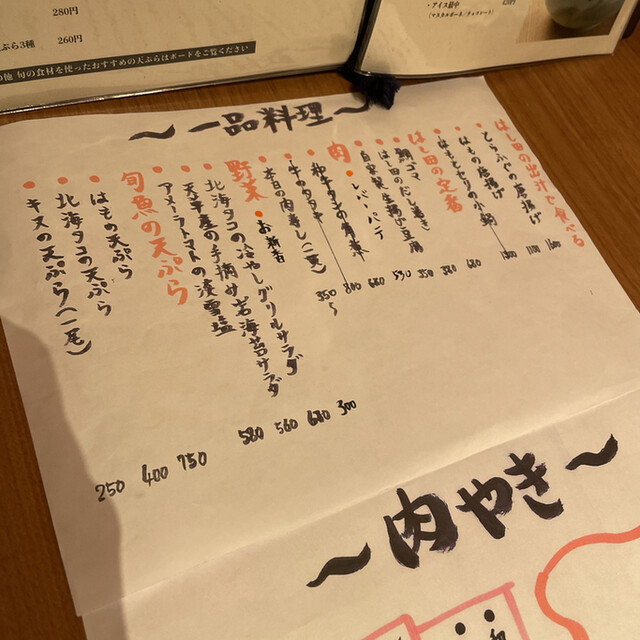 280円
ぷら3種 260円
の他 旬の食材を使ったおすすめの天ぷらはボードをご覧ください
・アイス最中
(マスカルポーネ／チョコレート)
420円
〜一品料理〜
はし田の出汁で食べる
とらふぐの唐揚げ
はもの唐揚げ
はもとセリの小鍋
はし田の定番
鯛ゴマ
はし田のだし巻き
自家製生揚げ豆腐
肉
レバーパテ
和牛タンの角煮
牛のタタキ
本日の肉寿し(一貫)
350〜
野菜
お新香
300
北海タコの冷やしグリルサラダ
680
天草産の手摘み岩海苔サラダ
560
アメーラトマトの淡雪塩
580
旬魚の天ぷら
はもの天ぷら
750
北海タコの天ぷら
400
キスの天ぷら(一尾)
250
〜肉やき〜